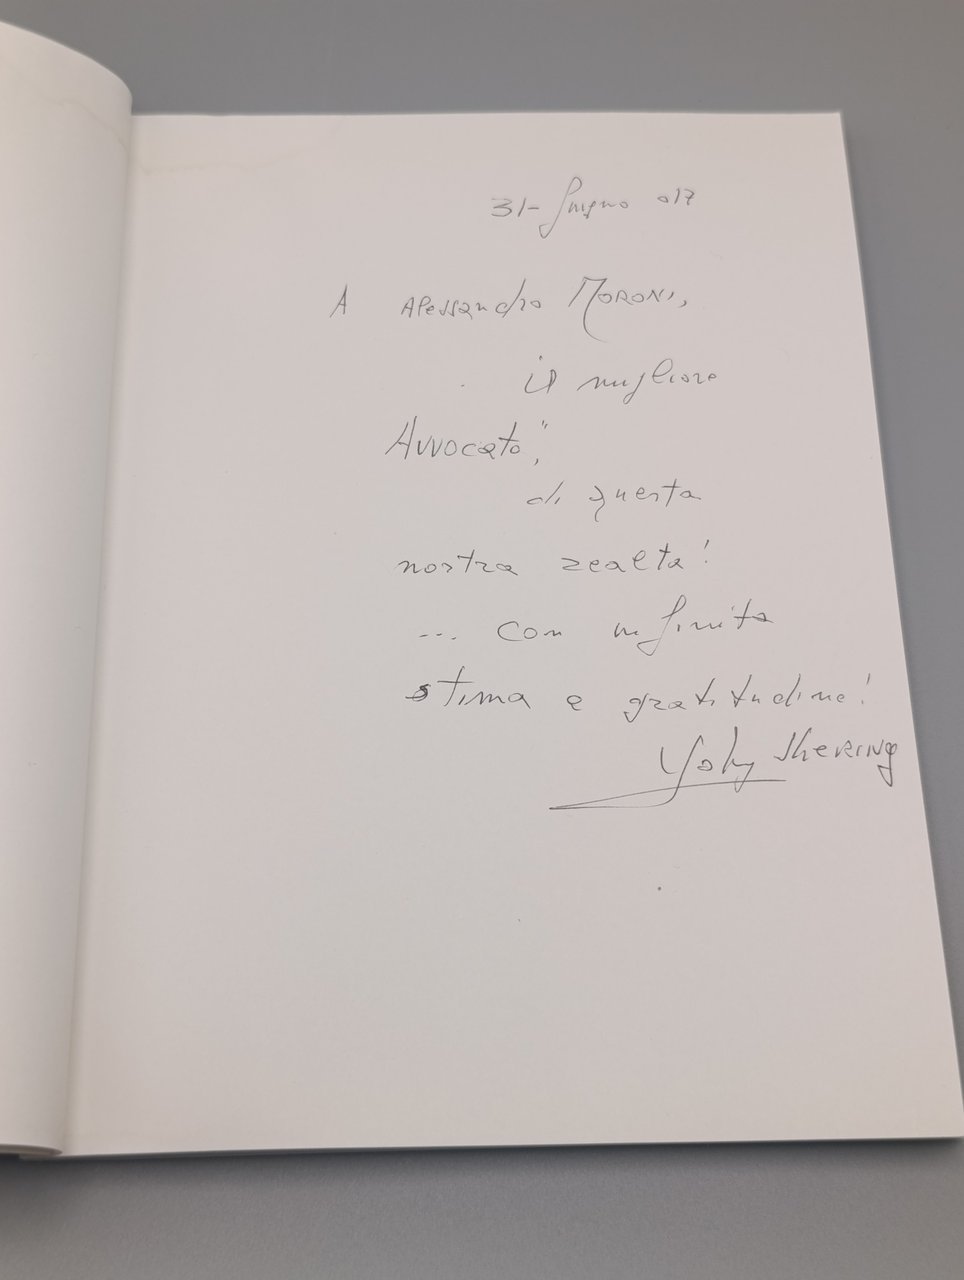 31- Giugno 017
A Alessandro MORONI,
il migliore
Avvocato",
di questa
nostra realtà!
... con infinita
stima e gratitudine!